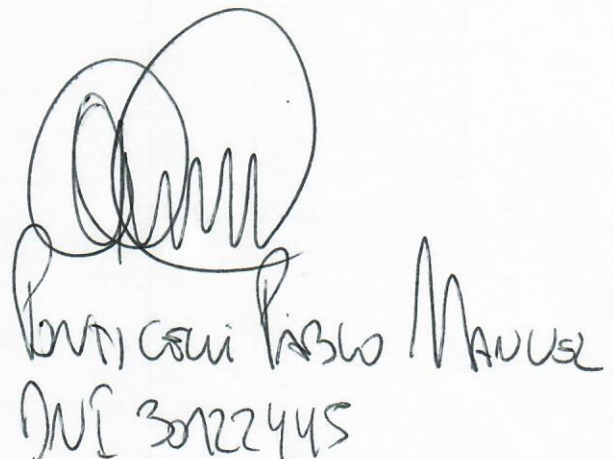 Ponticelli Pablo Manuel
DNI 30122445